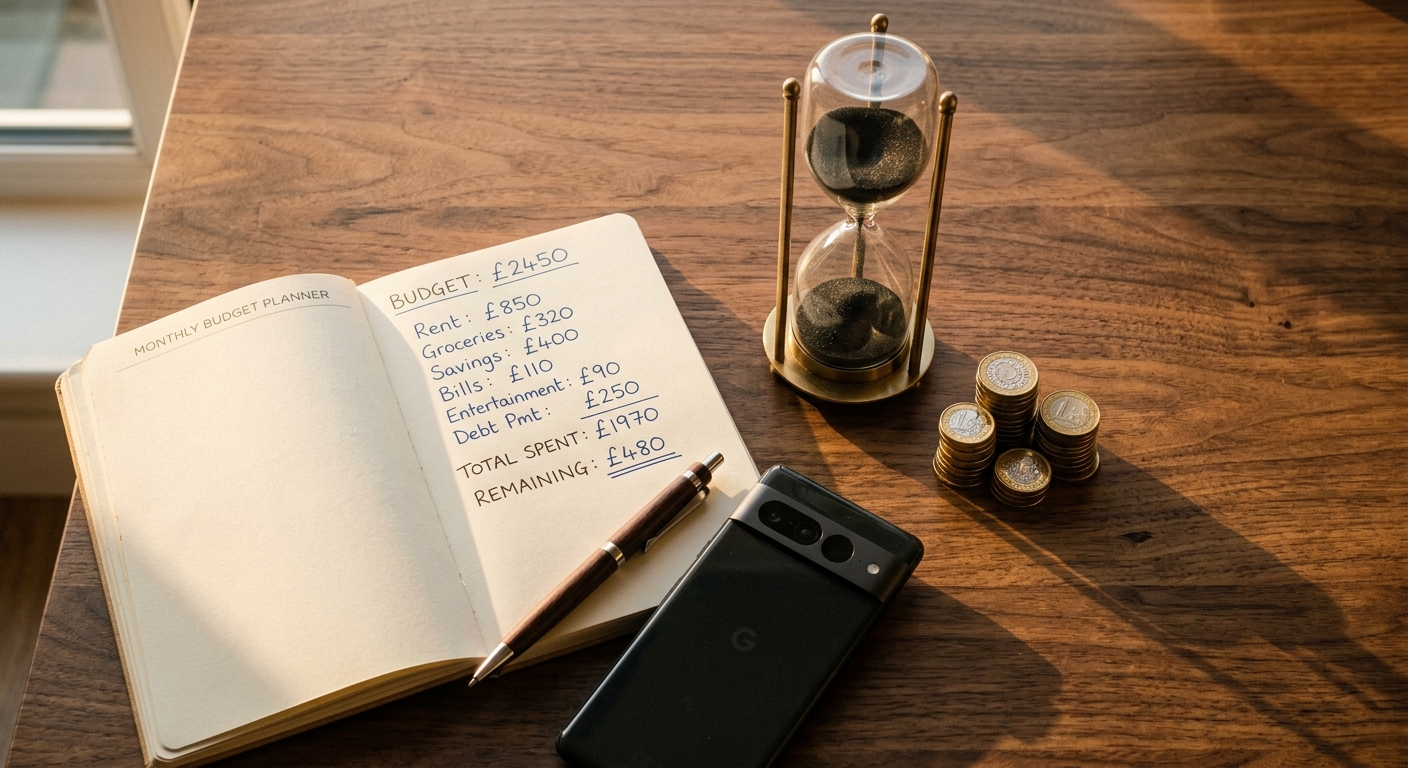 MONTHLY BUDGET PLANNER
BUDGET: £2450
Rent: £850
Groceries: £320
Savings: £400
Bills: £110
Entertainment: £90
Debt Pmt: £250
TOTAL SPENT: £1970
REMAINING: £480
G